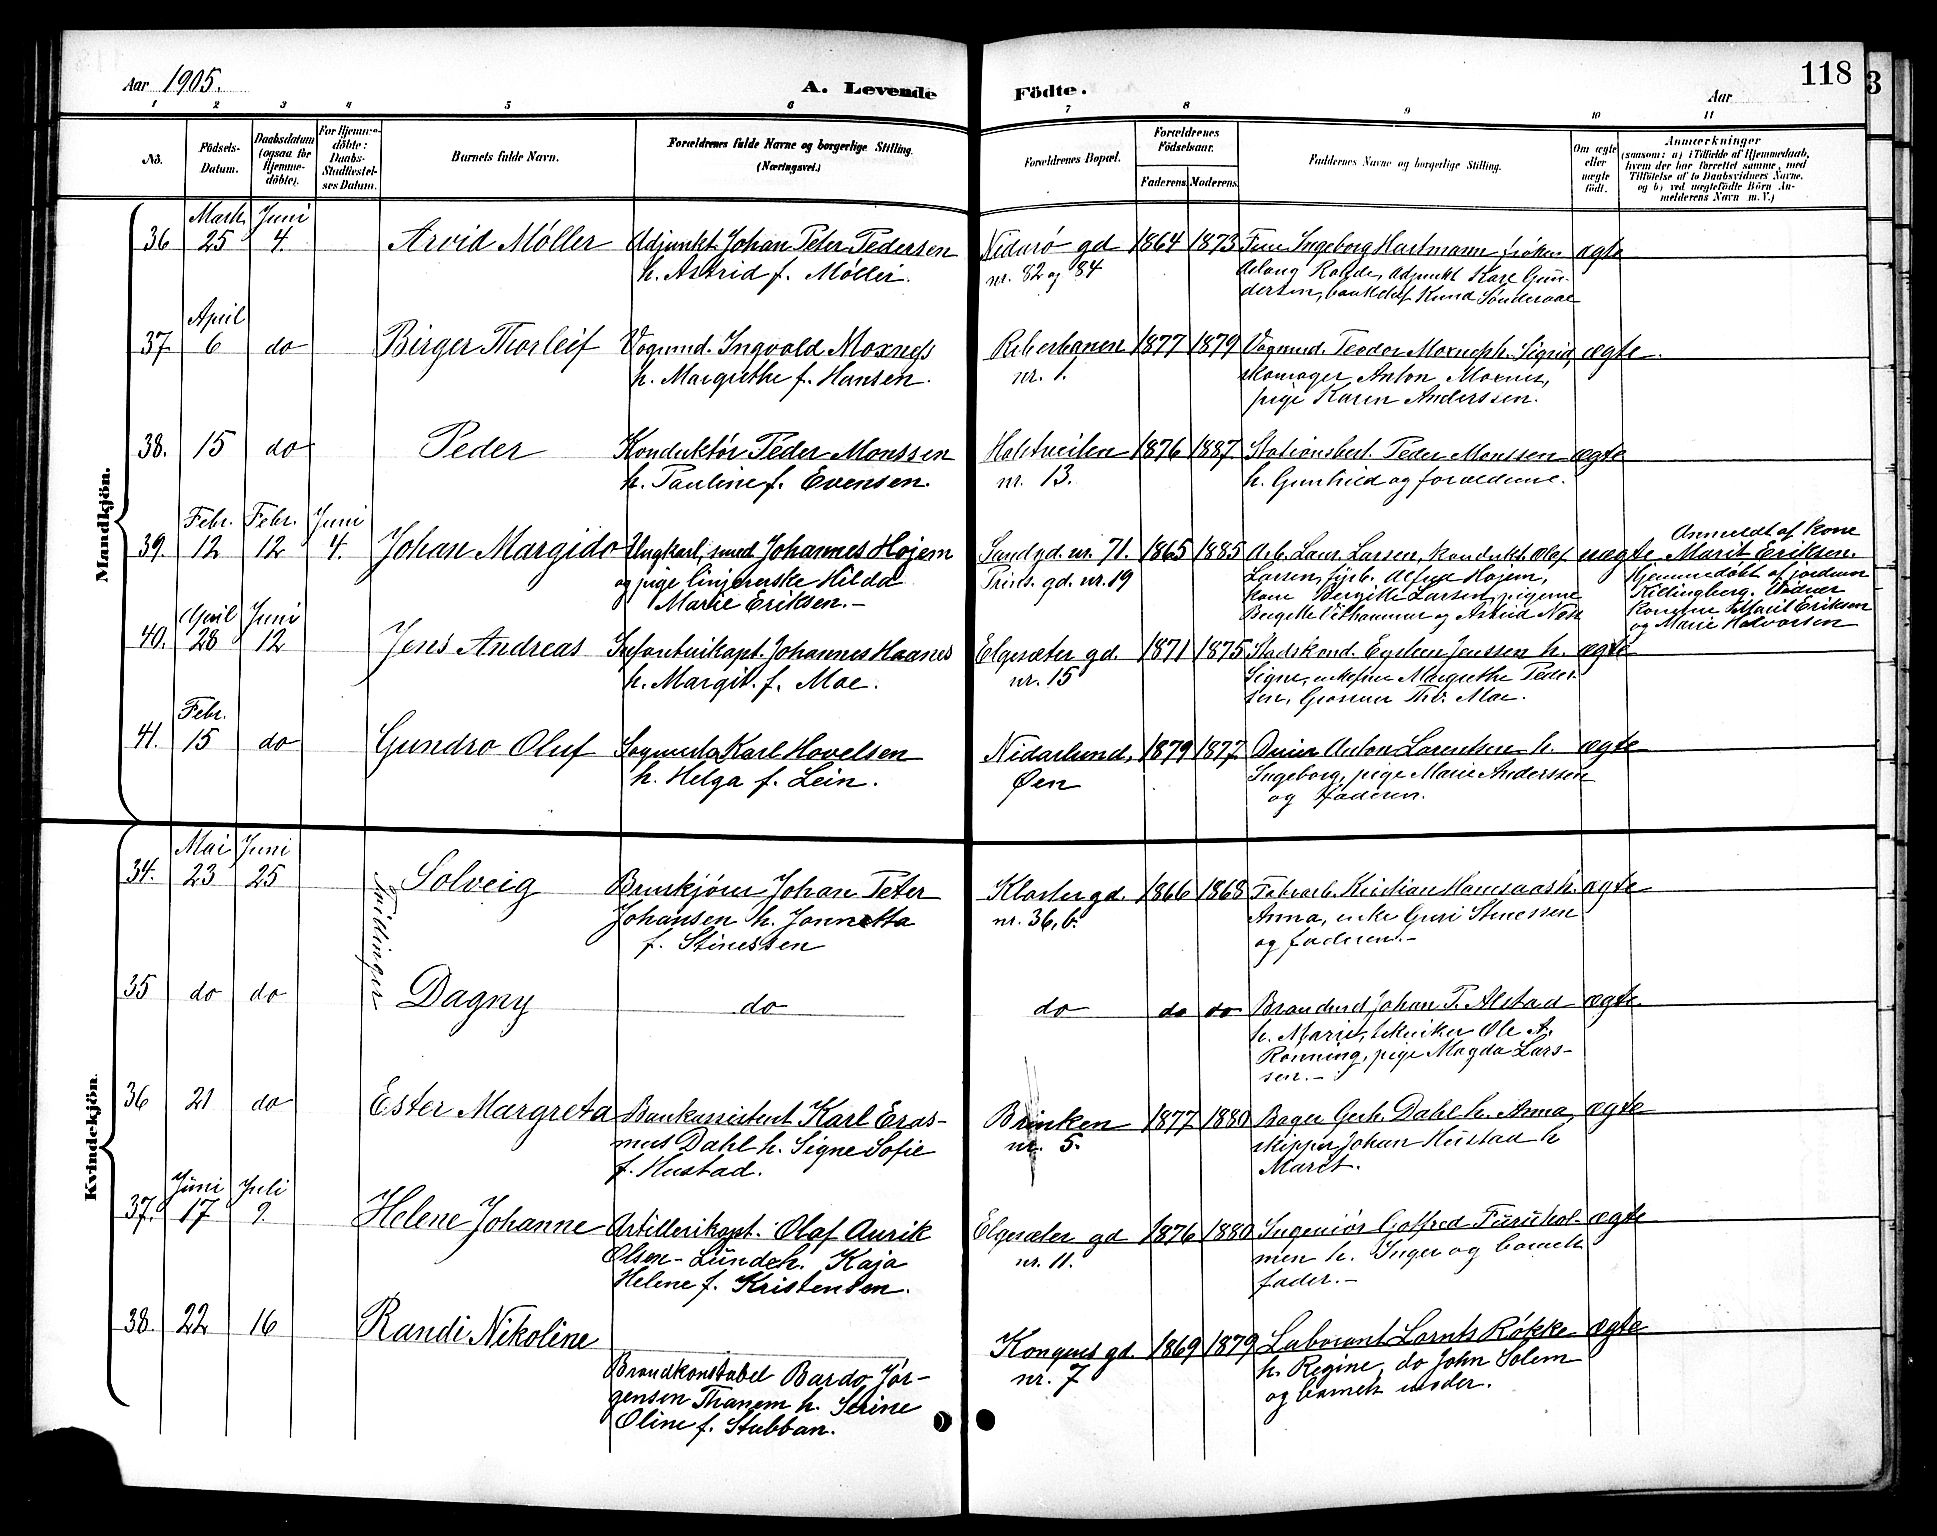 Aar 1905.
A. Levende
Födte.
Aar
118
3
1 2 3 4 5 6 7 8 9 10 11
No.
Födsels-
Datum.
Daabsdatum
(ogsaa for
Hjemme-
döbte).
For Hjemme-
döbte:
Daabs-
Stadfæstel-
ses Datum.
Barnets fulde Navn.
Forældrenes fulde Navne og borgerlige Stilling.
(Næringsvei.)
Forældrenes Bopæl.
Forældrenes
Födselsaar.
Faderens. Moderens.
Faddernes Navne og borgerlige Stilling.
Om ægte
eller
uægte
født.
Anmærkninger
(saasom: a) i Tilfælde af Hjemmedaab,
hvem der har forrettet samme, med
Tilföielse af to Daabsvidners Navne,
og b) ved uægtefödte Börn An-
melderens Navn m. V.)
Mandkjön.
Marts Juni
36 25 4. Arvid Møller Adjunkt Johan Peter Pedersen
h. Astrid f. Møller.
Nidarø gd
nr. 82 og 84
1864 1873
Fru Ingeborg Hartmann frøken
Aslaug Rohde, adjunkt Karl Gun-
dersen, Knud Sønderaal
ægte
April
37 6 do Birger Thorleif Vognmd. Ingvald Moxness
h. Margrethe f. Hansen.
Reberbanen
nr. 1.
1877 1879
Vognmd. Teodor Moxness h. Sigrid,
skomager Anton Moxnes,
pige Karen Anderssen.
ægte.
38. 15 do Peder Konduktör Peder Monssen
h. Pauline f. Evensen.
Holstveiten
nr. 13.
1876 1887
Stationsbet. Peder Monssen
h. Gunhild og forældrene.
ægte
Febr. Febr. Juni
39. 12 12 4. Johan Margido Ungkarl, smed Johannes Højem
og pige linjererske Hilda
Marie Eriksen.-
Sandgd. nr. 71.
Prins. gd. nr. 19
1865 1885
Arb. Laur. Larsen, kondukt. Olaf
Larsen, fyrb. Alfred Højem,
kone Bergitte Larsen, pigerne
Bergitte og Astrid Næss
uægte
Anmeldt af kone
Marit Eriksen.
Hjemmedøbt af jordmor
Killingberg. Vidner
konerne Marit Eriksen
og Marie Halvorsen
April Juni
40. 28 12 Jens Andreas Infanterikapt. Johannes Haanes
h. Margit f. Moe.
Elgesæter gd.
nr. 15
1871 1875
Stadskond. Jenssen h.
Signe, enkefru Margrethe Peder-
sen, Grosserer Thv. Moe.
ægte
Febr.
41. 15 do Gundro Oluf Karl Hovelsen
h. Helga f. Lein.
Nidarlund,
Øen
1879 1877
Anton Lorentsen h.
Ingeborg, pige Marie Anderssen
og faderen.
ægte
Kvindekjön.
Mai Juni
34. 23 25 Tvillinger Solveig Bruskjører Johan Peter
Johansen h. Jonnetta
f. Stinessen
Kloster gd.
nr. 36, b.
1866 1868
Fabrarb. Kristian Hansaas h.
Anna, enke Guri Stinessen
og faderen.-
ægte
35 do do Dagny do
do do do
Johan P. Alstad
h. Marie, tekniker Ole A.
Rønning, pige Magda Lars-
sen.-
ægte
36 21 do Ester Margreta Bankassistent Karl Eras-
mus Dahl h. Signe Sofie
f. Hustad.
Brinken
nr. 5.
1877 1880
Bager Gerh. Dahl h. Anna,
skipper Johan Hustad h
Marit.
ægte
Juni Juli
37. 17 9. Helene Johanne Artillerikapt. Olaf Aurik
Olsen-Lunde h. Kaja
Helene f. Kristensen.
Elgesæter gd
nr. 11.
1876 1880
Ingeniør Gotfred Furuhol-
men h. Inger og barnets
fader.-
ægte
38 22 16 Randi Nikoline
Brandkonstabel Bardo Jør-
gensen Thanem h. Serine
Oline f. Stubban.
Kongens gd.
nr. 7
1869 1879
Laborant Lornts Røkke
h. Regine, do John Solem
og barnets moder.
ægte